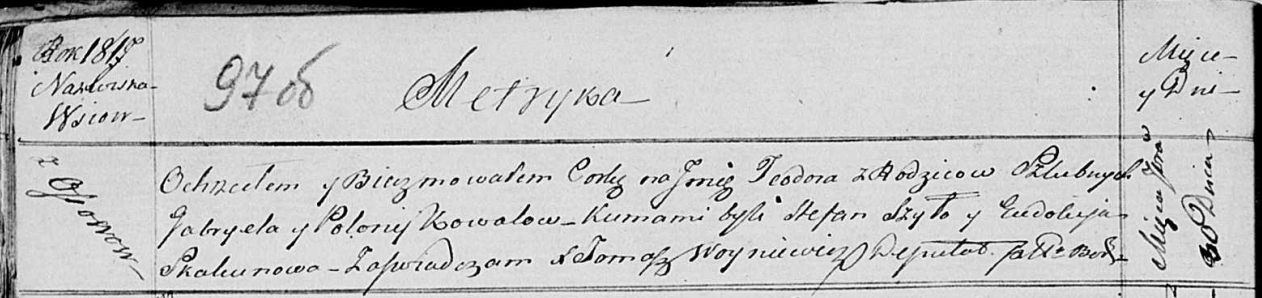 Rok 1817
Nazwiska
Wsiow
97 об
Metryka
Miejsce
y Dni
z Osowow
Ochrzciłem y Bierzmowałem Corkę na Jmię Teodora z Rodzicow Szlubnych
Gabryela y Polonij Kowalow Kumami byli Stefan Szyło y Eudokija
Skakunowa Zaswiadczam X Tomasz Woyniewicz Deputat
Miesca
30 Dnia